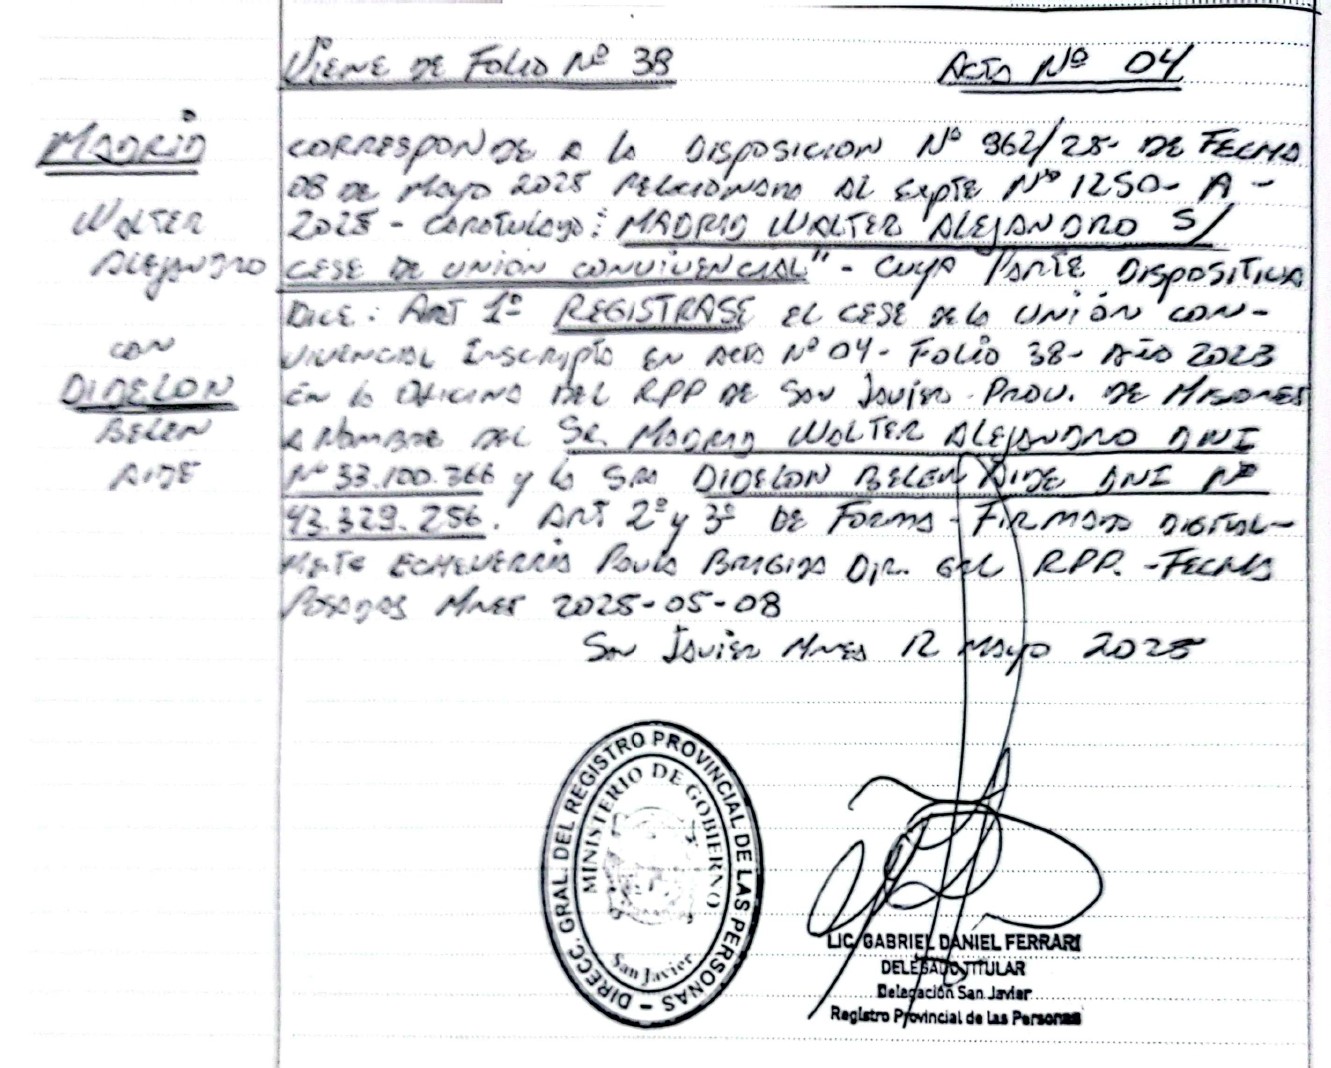 Viene de Folio Nº 38
Acta Nº 04
MADRID
WALTER
ALEJANDRO
CON
DIDELON
BELEN
AIDE
CORRESPONDE A la DISPOSICION Nº 962/25- DE FECHA
08 de Mayo 2025 RELCIONADA AL Expte Nº 1250- A -
2025 - Caratulado: MADRID WALTER ALEJANDRO S/
CESE DE UNIÓN CONVIVENCIAL" - Cuya PARTE DISPOSITIVA
DICE: ART 1º REGISTRASE EL CESE DE la UNIÓN CON-
VIVENCIAL Inscripto EN Acta Nº 04 - Folio 38 - Año 2023
En la Oficina DEL RPP DE San Javier - Prov. DE MISIONES
A NOMBRE DEL Sr. MADRID WALTER ALEJANDRO DNI
Nº 33.100.366 y la Sra DIDELON BELEN AIDE DNI Nº
43.329.256. ART 2º y 3º DE FORMA - FIRMADO DIGITAL-
Mente ECHEVERRIA Paula BRIGIDA Dir. GRL RPP. - FECHA
POSADAS Mnes 2025-05-08
San Javier Mnes 12 Mayo 2025
DIRECC. GRAL. DEL REGISTRO PROVINCIAL DE LAS PERSONAS -
MINISTERIO DE GOBIERNO
San Javier
LIC. GABRIEL DANIEL FERRARI
DELEGADO TITULAR
Delegación San Javier
Registro Provincial de las Personas